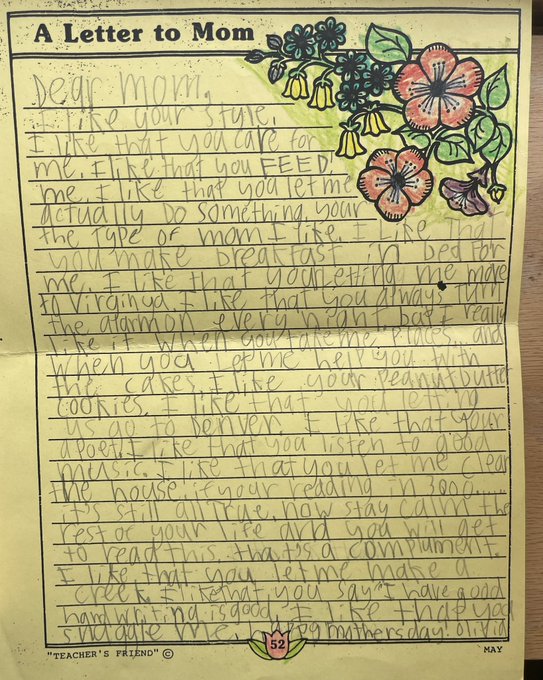 A Letter to Mom
Dear mom,
I like your style.
I like that you care for
me. I like that you FEED
me. I like that you let me
actually do something. your
the type of mom I like. I like that
you make breakfast in bed for
me. I like that your letting me move
to Virginya. I like that you always turn
the alarm on every night but I really
like it when you take me places and
when you let me help you with
the cakes. I like your peanut butter
cookies. I like that you letting
us go to Denver. I like that your
a poet. I like that you listen to good
music. I like that you let me clean
the house. if your reading in 3000.....
it's still all true. now stay calm the
rest of your life and you will get
to read this. that's a complument.
I like that you let me make a
creek. I like that you say "I have good
hand writing is good. I like that you
snuggle me. happy mothers day! olivia
52
"TEACHER'S FRIEND" ©
MAY